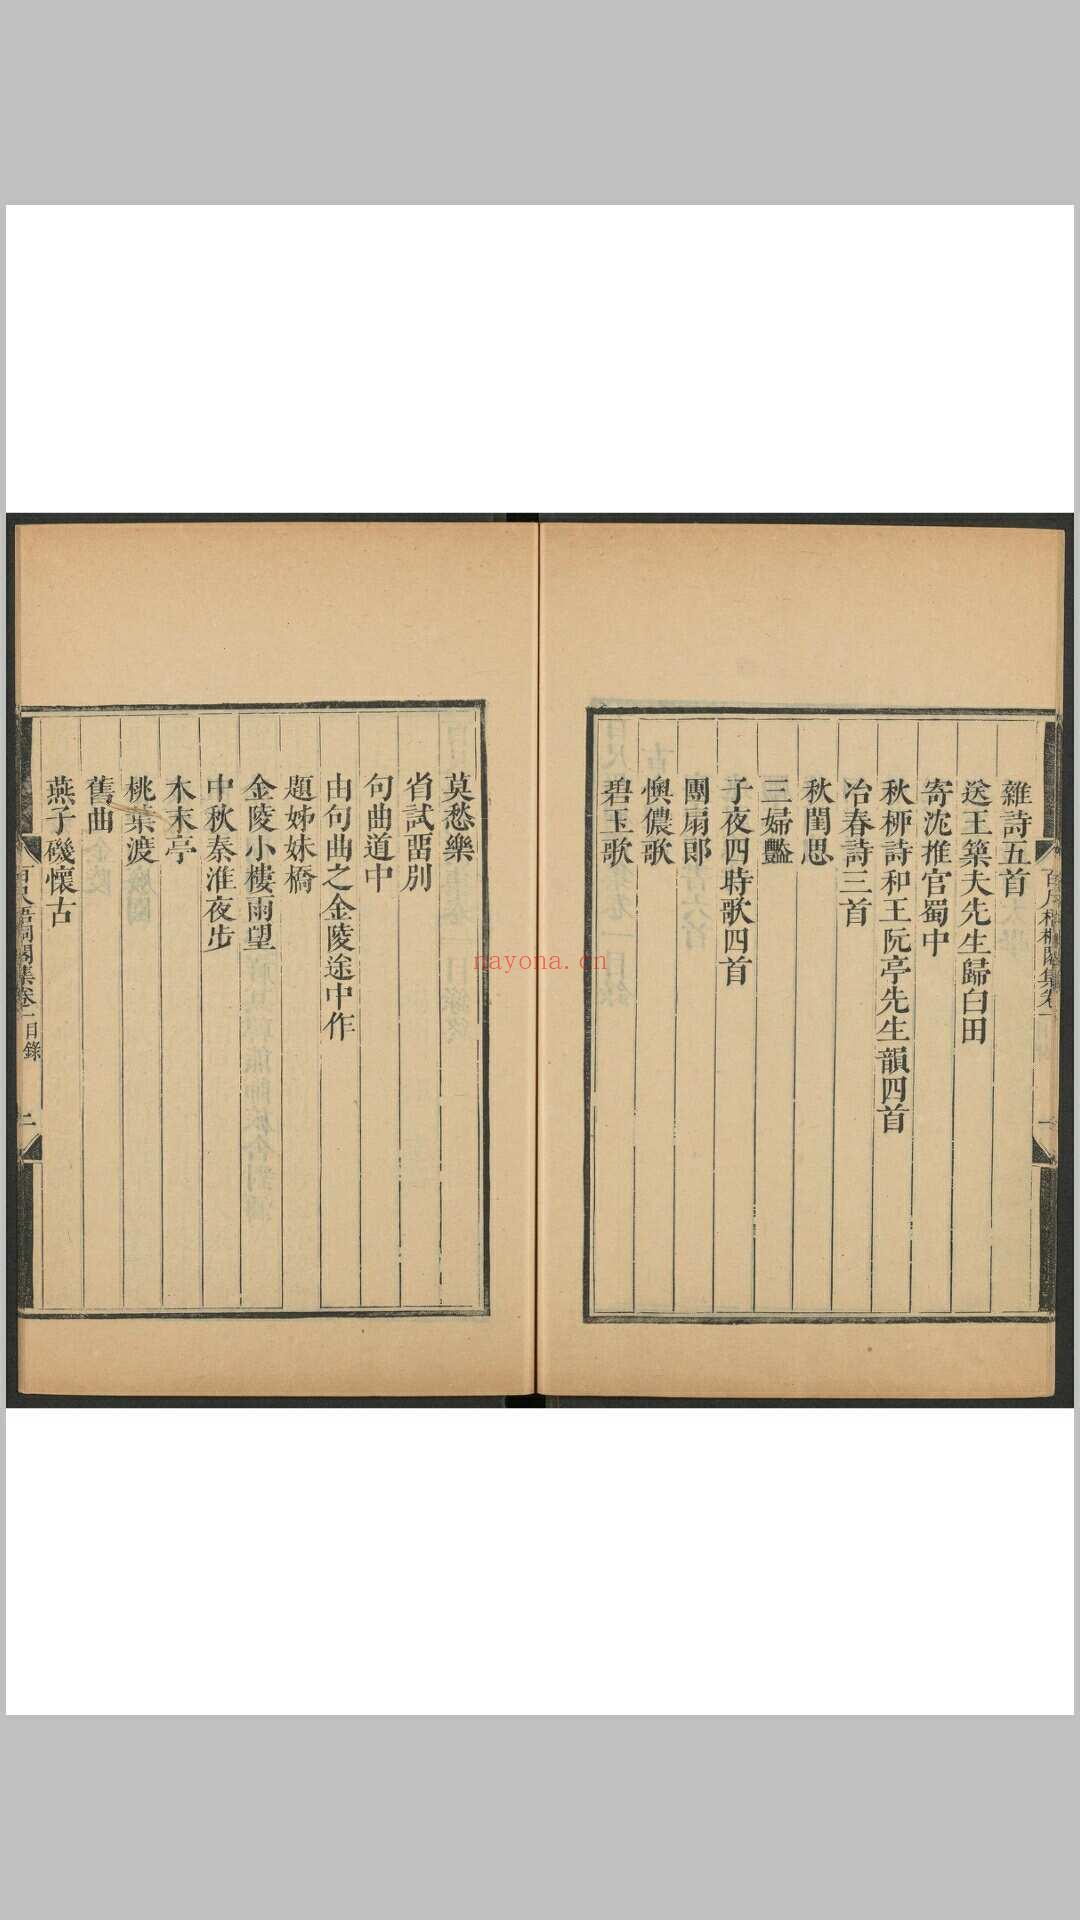 雜詩五首
送王築夫先生歸白田
寄沈推官蜀中
秋柳詩和王阮亭先生韻四首
冶春詩三首
秋閨思
三婦豔
子夜四時歌四首
團扇郎
懊儂歌
碧玉歌
莫愁樂
省試畱別
句曲道中
由句曲之金陵途中作
題姊妹橋
金陵小樓雨望
中秋秦淮夜步
木末亭
桃葉渡
舊曲
燕子磯懷古
百尺梧桐閣集卷一目錄
二
nayona.cn